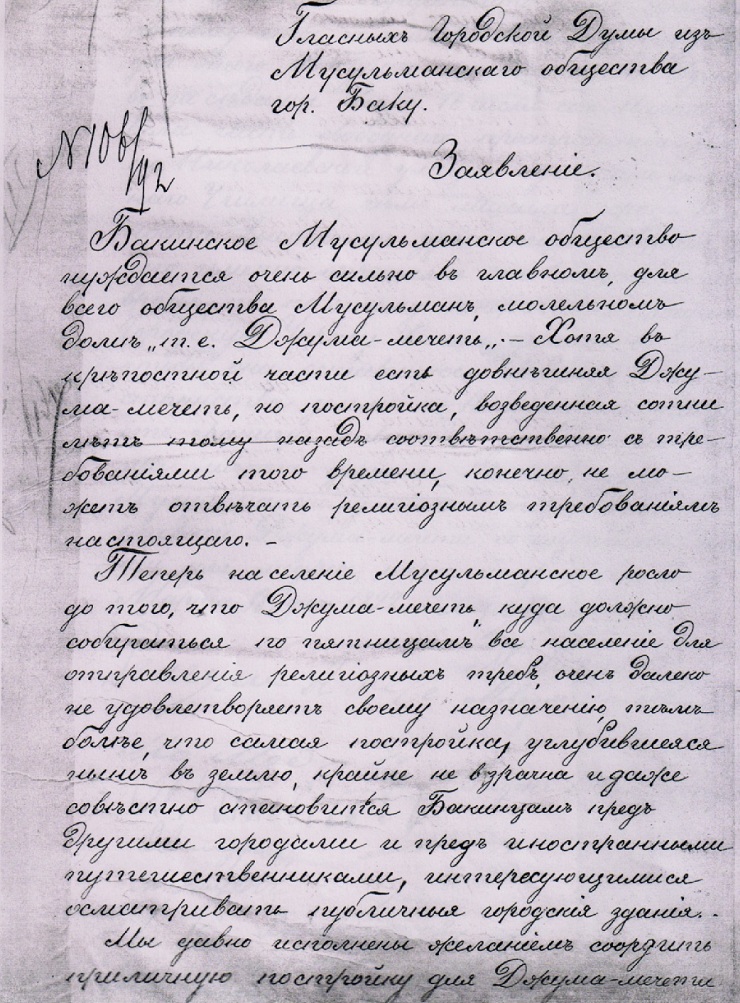 Гласныхъ Городской Думы изъ
Мусульманскаго общества
гор. Баку.
Заявленіе.
Бакинское Мусульманское общество
нуждается очень сильно въ главномъ, для
всего общества Мусульманъ, молельномъ
домѣ „т. е. Джума-мечеть„. — Хотя въ
крѣпостной части есть Джу-
ма-мечеть, но постройка, возведенная сотни
лѣтъ тому назадъ соотвѣтственно съ тре-
бованіями того времени, конечно, не мо-
жетъ отвѣчать религіознымъ требованіямъ
настоящаго. —
Теперь населеніе Мусульманское росло
до того, что Джума-мечеть, куда должно
собираться по пятницамъ все населеніе для
отправленія религіозныхъ требъ, очень далеко
не удовлетворяетъ своему назначенію, тѣмъ
болѣе, что самая постройка, углубившееяся
нынѣ въ землю, крайне не взрачна и даже
совѣстно становится Бакинцамъ предъ
другими городами и предъ иностранными
путешественниками, интересующимися
осматривать публичныя городскія зданія.
Мы давно исполнены желаніемъ соорудить
приличную постройку для Джума-мечети